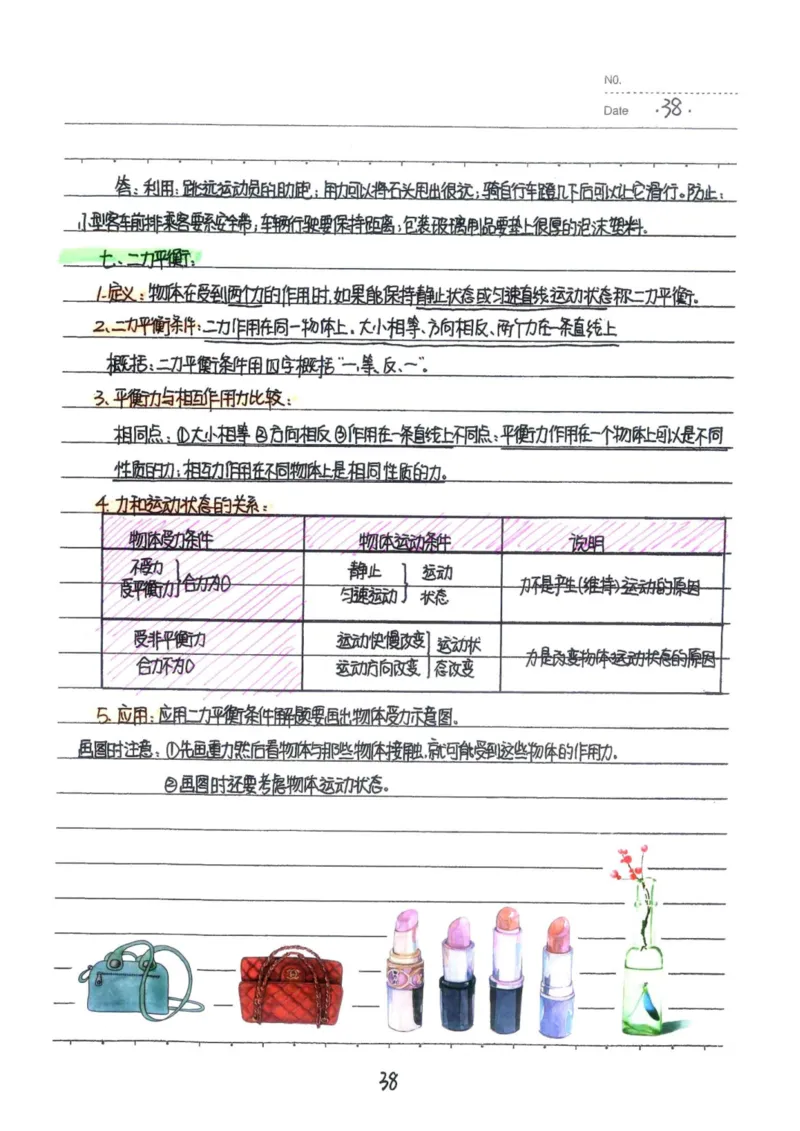 NO.
Date ·38·
答：利用：跳远运动员的助跑；用力可以将石头甩出很远；骑自行车蹬几下后可以让它滑行。防止：
小型客车前排乘客要系安全带；车辆行驶要保持距离；包装玻璃制品要垫上很厚的泡沫塑料。
七、二力平衡：
1.定义：物体在受到两个力的作用时，如果能保持静止状态或匀速直线运动状态称二力平衡。
2、二力平衡条件：二力作用在同一物体上。大小相等、方向相反、两个力在一条直线上
概括：二力平衡条件用四字概括“一、等、反、一”。
3、平衡力与相互作用力比较：
相同点：①大小相等②方向相反③作用在一条直线上不同点：平衡力作用在一个物体上可以是不同
性质的力；相互力作用在不同物体上是相同性质的力。
4.力和运动状态的关系：
物体受力条件 物体运动条件 说明
不受力 受平衡力 合力为0 静止 匀速运动 运动状态 力不是产生(维持)运动的原因
受非平衡力 合力不为0 运动快慢改变 运动方向改变 运动状态改变 力是改变物体运动状态的原因
5.应用：应用二力平衡条件解题要画出物体受力示意图。
画图时注意：①先画重力然后看物体与那些物体接触，就可能受到这些物体的作用力。
②画图时还要考虑物体运动状态。
38